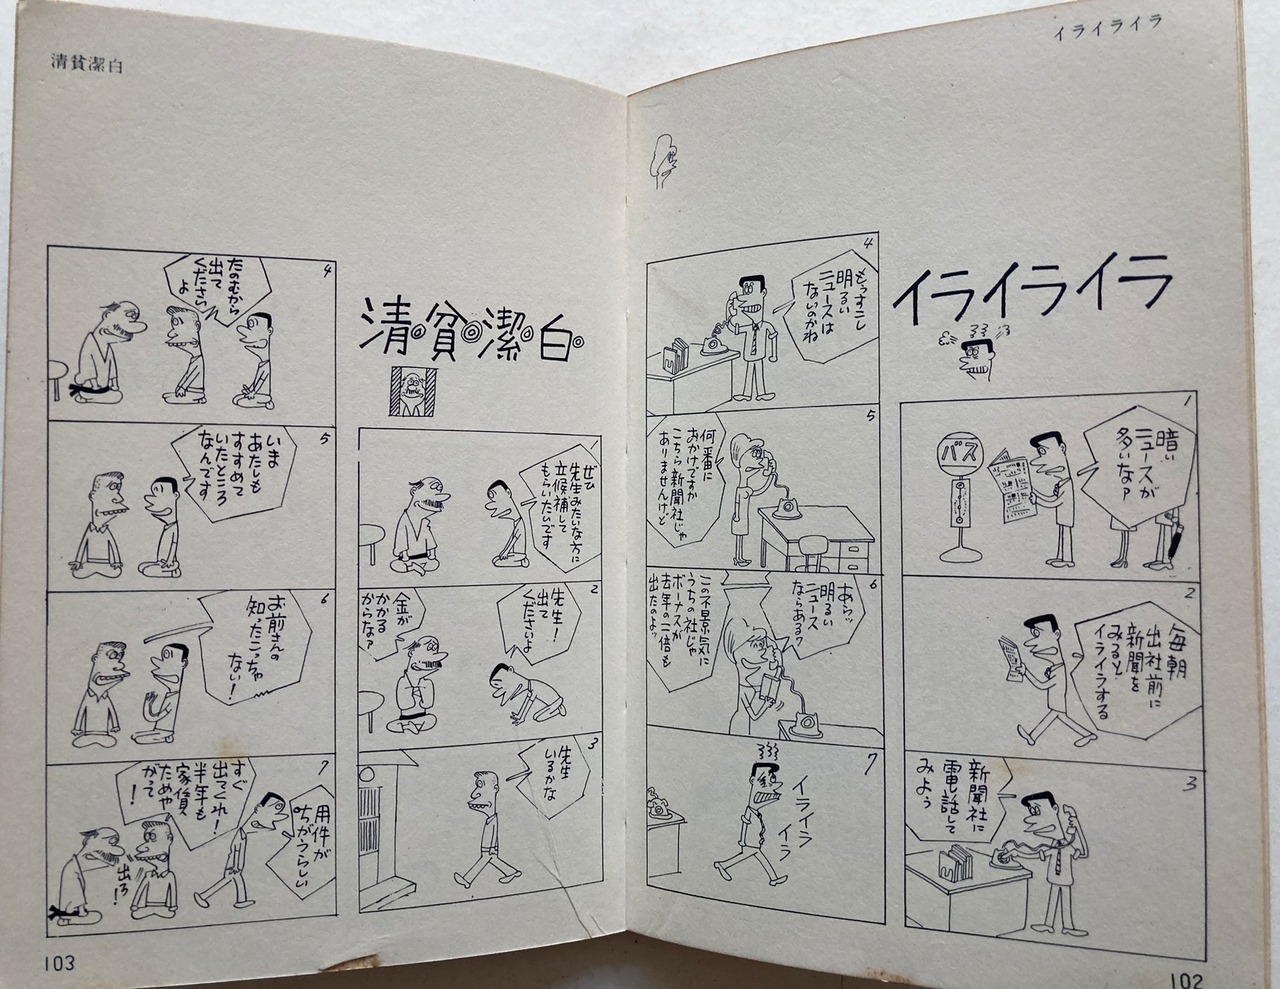 イライライラ
イライライラ
1
暗い
ニュースが
多いなァ
バス
2
毎朝
出社前に
新聞を
みると
イライラする
3
新聞社に
電話して
みよう
4
もうすこし
明るい
ニュースは
ないのかね
5
何番に
おかけですか
こちら新聞社じゃ
ありませんけど
6
あらッ
明るい
ニュース
ならある?
この不景気に
うちの社じゃ
ボーナスが
去年の二倍も
出たのよッ
7
イライラ
イラ
102
清貧潔白
清貧潔白
1
ぜひ
先生みたいな方に
立候補して
もらいたいです
2
先生!
出て
くださいよ
金が
かかる
からなァ
3
先生
いるかな
4
たのむから
出て
ください
よ
5
いま
あたしも
すすめて
いたところ
なんです
6
お前さんの
知ったこっちゃ
ない!
7
用件が
ちがうらしい
すぐ
出てくれ!
半年も
家賃
ためや
がって
!
出ろ!
103